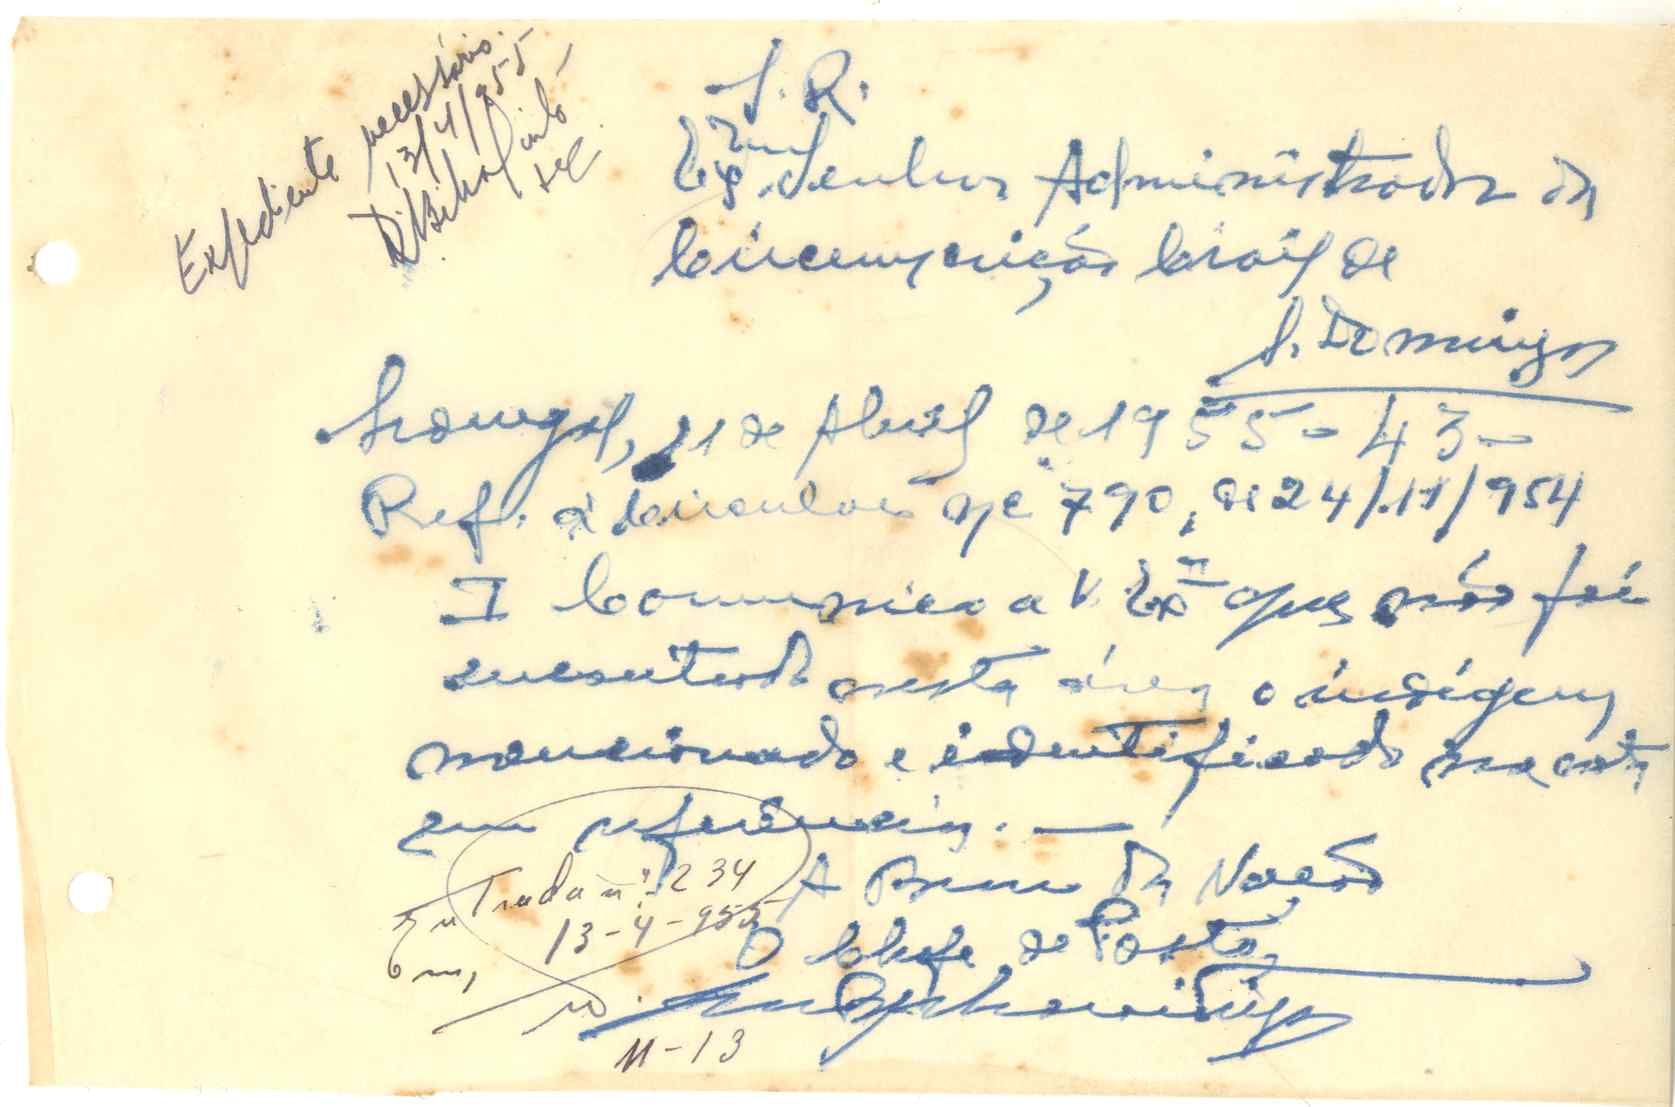 Expediente necessário.
13/4/955
S. R.
Exmº. Senhor Administrador da
Circunscrição Civil de
S. Domingos
11 de Abril de 1955 - 43 -
Ref. à Circular nº 790, de 24/11/954
I Comunico a V. Exª que não foi
encontrado nesta área o indígena
mencionado e identificado na nota
em referência. —
A Bem da Nação
O Chefe de Posto,
Entrada nº 234
Em, 13-4-955
M-13